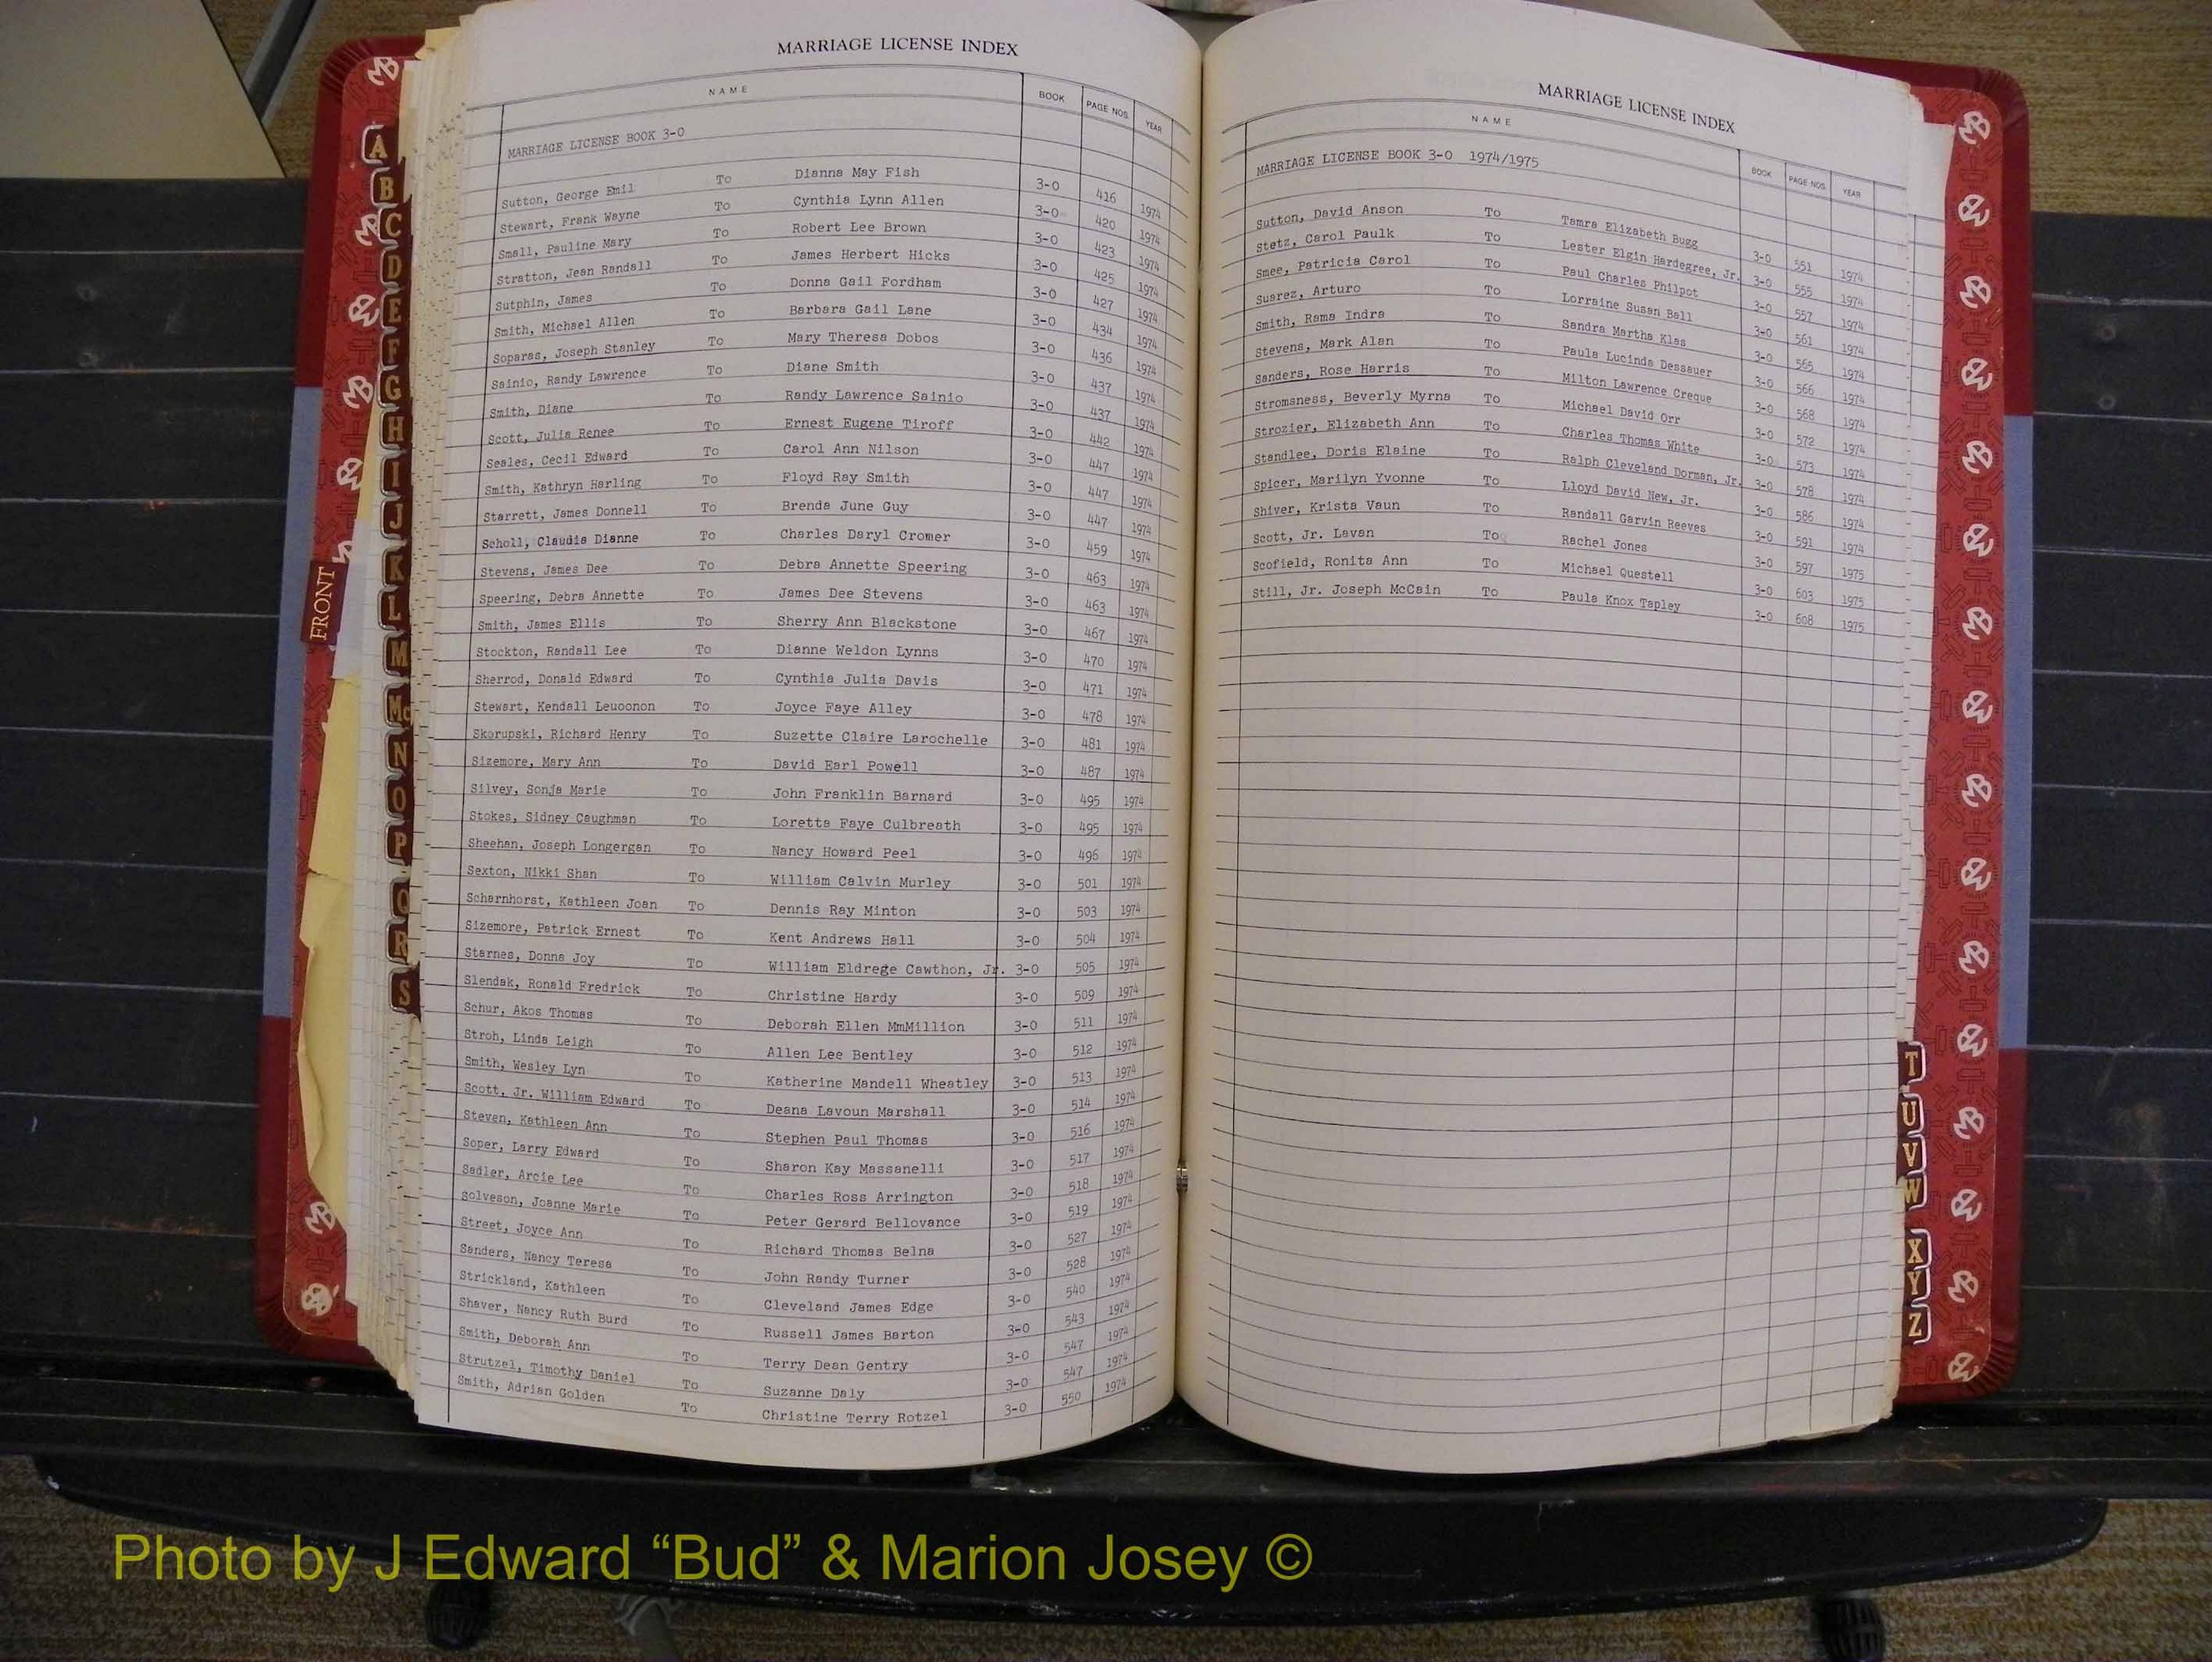 MARRIAGE LICENSE INDEX
NAME BOOK PAGE NOS. YEAR
MARRIAGE LICENSE BOOK 3-0
Sutton, George Emil To Dianna May Fish 3-0 416 1974
Stewart, Frank Wayne To Cynthia Lynn Allen 3-0 420 1974
Small, Pauline Mary To Robert Lee Brown 3-0 423 1974
Stratton, Jean Randall To James Herbert Hicks 3-0 425 1974
Sutphin, James To Donna Gail Fordham 3-0 427 1974
Smith, Michael Allen To Barbara Gail Lane 3-0 434 1974
Soparas, Joseph Stanley To Mary Theresa Dobos 3-0 436 1974
Sainio, Randy Lawrence To Diane Smith 3-0 437 1974
Smith, Diane To Randy Lawrence Sainio 3-0 437 1974
Scott, Julia Renee To Ernest Eugene Tiroff 3-0 442 1974
Seales, Cecil Edward To Carol Ann Nilson 3-0 447 1974
Smith, Kathryn Harling To Floyd Ray Smith 3-0 447 1974
Starrett, James Donnell To Brenda June Guy 3-0 447 1974
Scholl, Claudia Dianne To Charles Daryl Cromer 3-0 459 1974
Stevens, James Dee To Debra Annette Speering 3-0 463 1974
Speering, Debra Annette To James Dee Stevens 3-0 463 1974
Smith, James Ellis To Sherry Ann Blackstone 3-0 467 1974
Stockton, Randall Lee To Dianne Weldon Lynns 3-0 470 1974
Sherrod, Donald Edward To Cynthia Julia Davis 3-0 471 1974
Stewart, Kendall Leuoonon To Joyce Faye Alley 3-0 478 1974
Skorupski, Richard Henry To Suzette Claire Larochelle 3-0 481 1974
Sizemore, Mary Ann To David Earl Powell 3-0 487 1974
Silvey, Sonja Marie To John Franklin Barnard 3-0 495 1974
Stokes, Sidney Caughman To Loretta Faye Culbreath 3-0 495 1974
Sheehan, Joseph Longergan To Nancy Howard Peel 3-0 496 1974
Sexton, Nikki Shan To William Calvin Murley 3-0 501 1974
Scharnhorst, Kathleen Joan To Dennis Ray Minton 3-0 503 1974
Sizemore, Patrick Ernest To Kent Andrews Hall 3-0 504 1974
Starnes, Donna Joy To William Eldrege Cawthon, Jr. 3-0 505 1974
Slendak, Ronald Fredrick To Christine Hardy 3-0 509 1974
Schur, Akos Thomas To Deborah Ellen MmMillion 3-0 511 1974
Stroh, Linda Leigh To Allen Lee Bentley 3-0 512 1974
Smith, Wesley Lyn To Katherine Mandell Wheatley 3-0 513 1974
Scott, Jr. William Edward To Deana Lavoun Marshall 3-0 514 1974
Steven, Kathleen Ann To Stephen Paul Thomas 3-0 516 1974
Soper, Larry Edward To Sharon Kay Massanelli 3-0 517 1974
Sadler, Arcie Lee To Charles Ross Arrington 3-0 518 1974
Solveson, Joanne Marie To Peter Gerard Bellovance 3-0 519 1974
Street, Joyce Ann To Richard Thomas Belna 3-0 527 1974
Sanders, Nancy Teresa To John Randy Turner 3-0 528 1974
Strickland, Kathleen To Cleveland James Edge 3-0 540 1974
Shaver, Nancy Ruth Burd To Russell James Barton 3-0 543 1974
Smith, Deborah Ann To Terry Dean Gentry 3-0 547 1974
Strutzel, Timothy Daniel To Suzanne Daly 3-0 547 1974
Smith, Adrian Golden To Christine Terry Rotzel 3-0 550 1974
MARRIAGE LICENSE INDEX
NAME BOOK PAGE NOS. YEAR
MARRIAGE LICENSE BOOK 3-0 1974/1975
Sutton, David Anson To Tamra Elizabeth Bugg 3-0 551 1974
Stetz, Carol Paulk To Lester Elgin Hardegree, Jr. 3-0 555 1974
Smee, Patricia Carol To Paul Charles Philpot 3-0 557 1974
Suarez, Arturo To Lorraine Susan Ball 3-0 561 1974
Smith, Rama Indra To Sandra Martha Klas 3-0 565 1974
Stevens, Mark Alan To Paula Lucinda Dessauer 3-0 566 1974
Sanders, Rose Harris To Milton Lawrence Creque 3-0 568 1974
Stromsness, Beverly Myrna To Michael David Orr 3-0 572 1974
Strozier, Elizabeth Ann To Charles Thomas White 3-0 573 1974
Standlee, Doris Elaine To Ralph Cleveland Dorman, Jr. 3-0 578 1974
Spicer, Marilyn Yvonne To Lloyd David New, Jr. 3-0 586 1974
Shiver, Krista Vaun To Randall Garvin Reeves 3-0 591 1974
Scott, Jr. Lavan To Rachel Jones 3-0 597 1975
Scofield, Ronita Ann To Michael Questell 3-0 603 1975
Still, Jr. Joseph McCain To Paula Knox Tapley 3-0 608 1975
FRONT
A
B
C
D
E
F
G
H
I
J
K
L
M
Mc
N
O
P
Q
R
S
T
U
V
W
X
Y
Z
Photo by J Edward “Bud” & Marion Josey ©